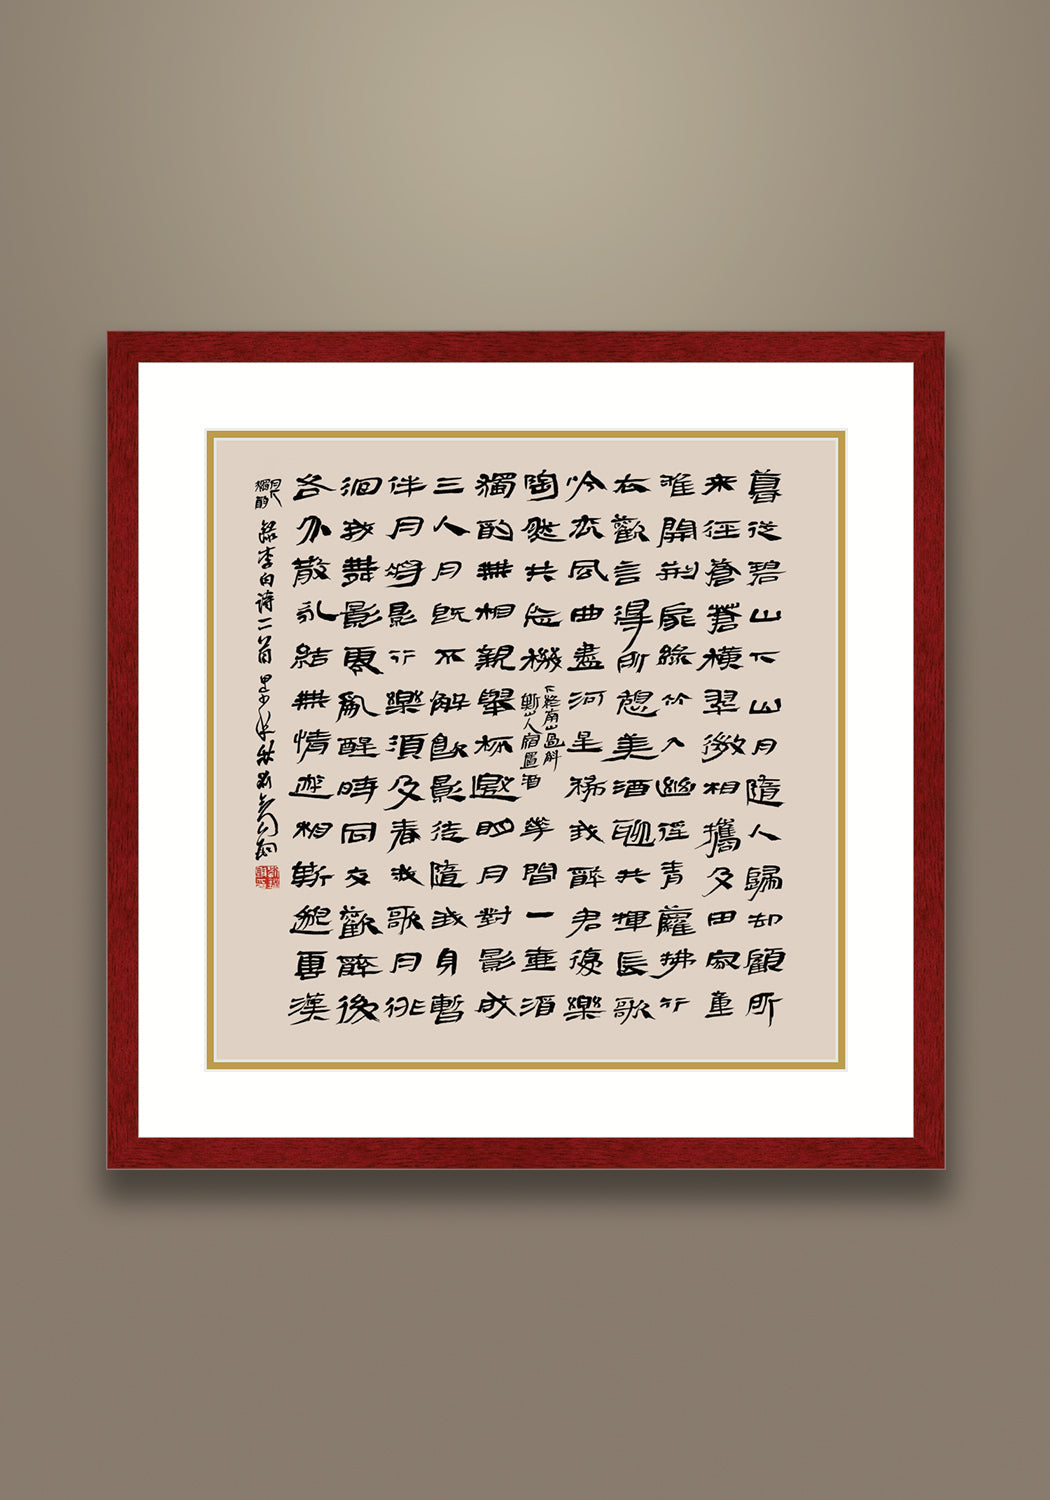 暮從碧山下山月隨人歸却顧所
来徑蒼蒼橫翠微相攜及田家童
稚開荆扉綠竹入幽徑青蘿拂行
衣歡言得所憩美酒聊共揮長歌
吟松風曲盡河星稀我醉君復樂
陶然共忘機
下終南山過斛
斯山人宿置酒
華間一壺酒
獨酌無相親舉杯邀明月對影成
三人月既不解飲影徒隨我身暫
伴月將影行樂須及春我歌月徘
徊我舞影零亂醒時同交歡醉後
各分散永結無情遊相期邈雲漢
月下
獨酌
錄李白诗二首